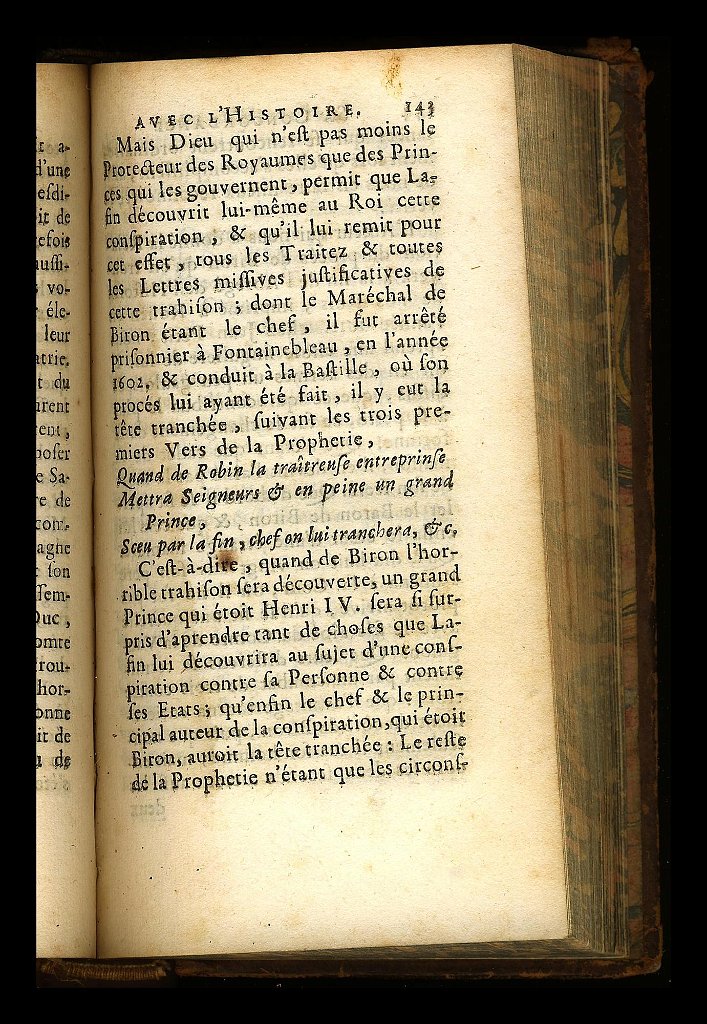 r a-
d'une
esdi-
it de
tefois
aussi-
s vo-
r éle-
leur
atrie,
t du
urent
rent,
poser
e Sa-
re de
com-
agne
son
ssem-
Duc,
omte
trou-
hor-
onne
it de
u de
AVEC L'HISTOIRE. 143
Mais Dieu qui n'eſt pas moins le
Protecteur des Royaumes que des Prin-
ces qui les gouvernent, permit que La-
fin découvrit lui-même au Roi cette
conſpiration, & qu'il lui remit pour
cet effet, tous les Traitez & toutes
les Lettres miſſives juſtificatives de
cette trahiſon; dont le Maréchal de
Biron étant le chef, il fut arrêté
priſonnier à Fontainebleau, en l'année
1602. & conduit à la Baſtille, où ſon
procés lui ayant été fait, il y eut la
tête tranchée, ſuivant les trois pre-
miers Vers de la Prophetie,
Quand de Robin la traîtreuſe entreprinſe
Mettra Seigneurs & en peine un grand
Prince,
Sceu par la fin, chef on lui tranchera, &c.
C'eſt-à-dire, quand de Biron l'hor-
rible trahiſon ſera découverte, un grand
Prince qui étoit Henri IV. ſera ſi ſur-
pris d'aprendre tant de choſes que La-
fin lui découvrira au ſujet d'une conſ-
piration contre ſa Perſonne & contre
ſes Etats; qu'enfin le chef & le prin-
cipal auteur de la conſpiration, qui étoit
Biron, auroit la tête tranchée: Le reſte
de la Prophetie n'étant que les circonſ-